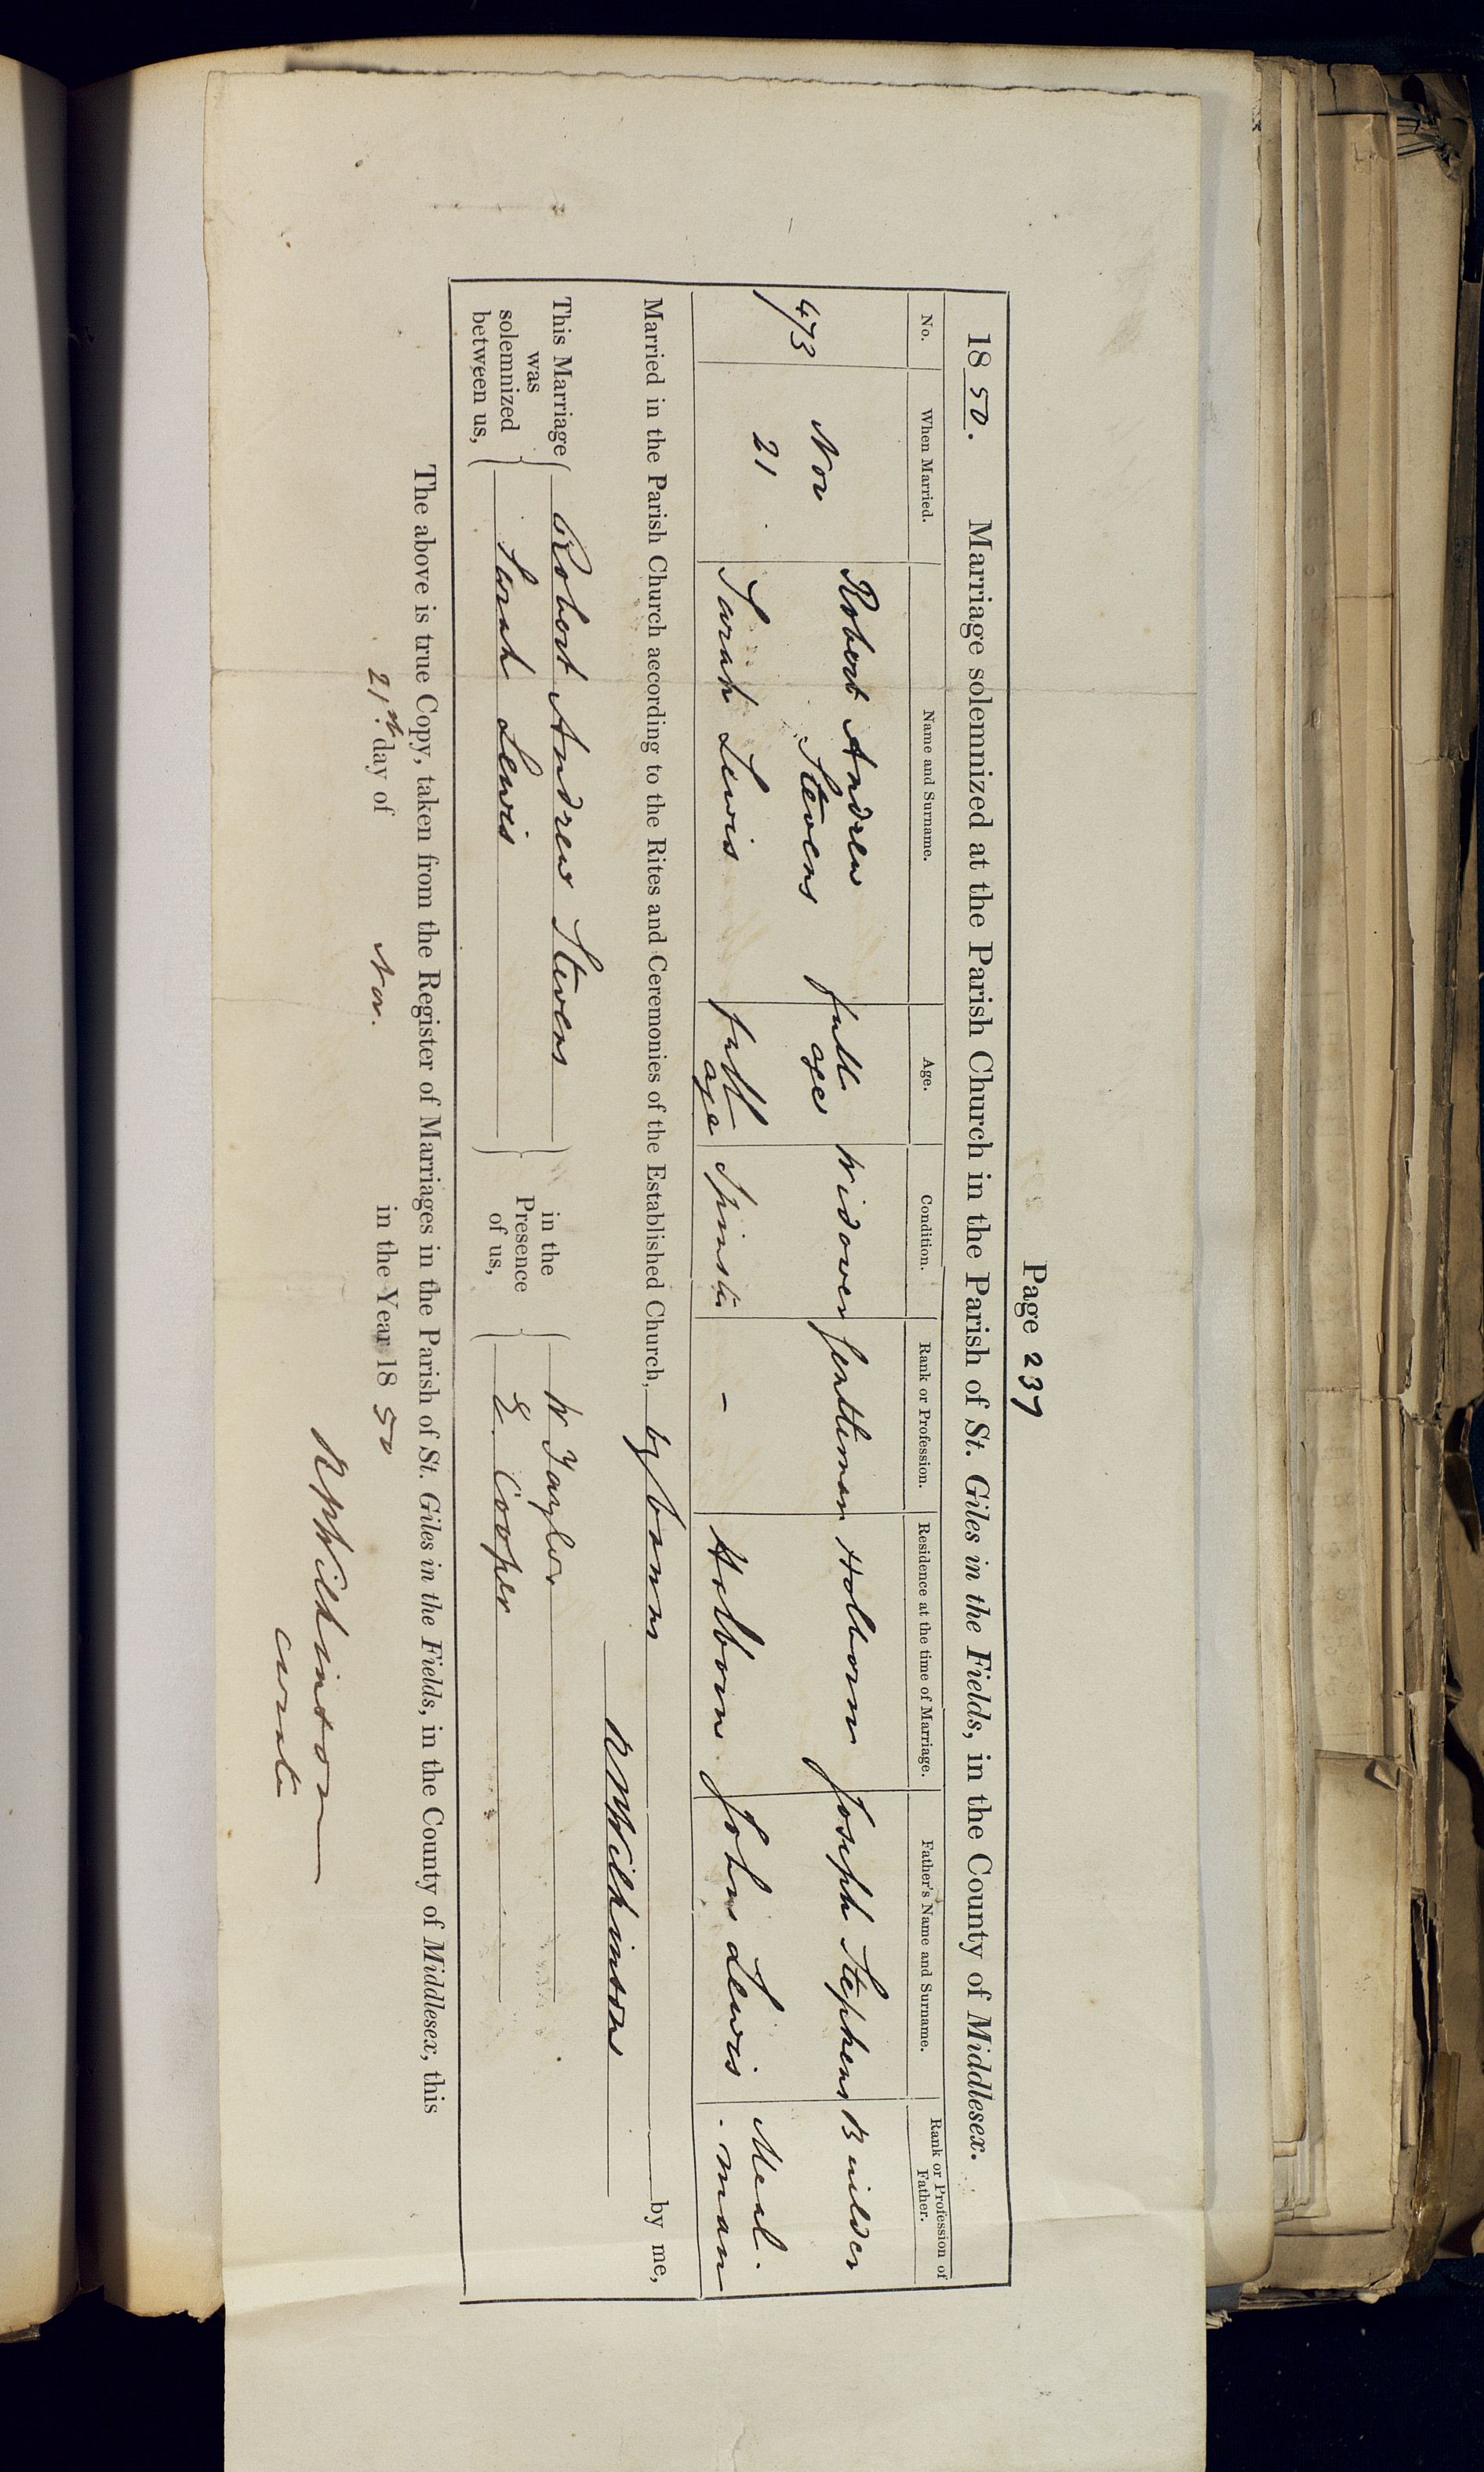 Page 237
1850. Marriage solemnized at the Parish Church in the Parish of St. Giles in the Fields, in the County of Middlesex.
No. When Married. Name and Surname. Age. Condition. Rank or Profession. Residence at the time of Marriage. Father's Name and Surname. Rank or Profession of Father.
473 Nov 21 Robert Andrew Stevens full age Widower Gentleman Holborn Joseph Stephens Builder
Sarah Lewis full age Spinster - Holborn John Lewis Meal-man
Married in the Parish Church according to the Rites and Ceremonies of the Established Church, by banns by me,
R P Wilkinson
This Marriage was solemnized between us,
Robert Andrew Stevens
Sarah Lewis
in the Presence of us,
W Taylor
E. Cooper
The above is true Copy, taken from the Register of Marriages in the Parish of St. Giles in the Fields, in the County of Middlesex, this
21st. day of Nov. in the Year 1850
R P Wilkinson
Curate